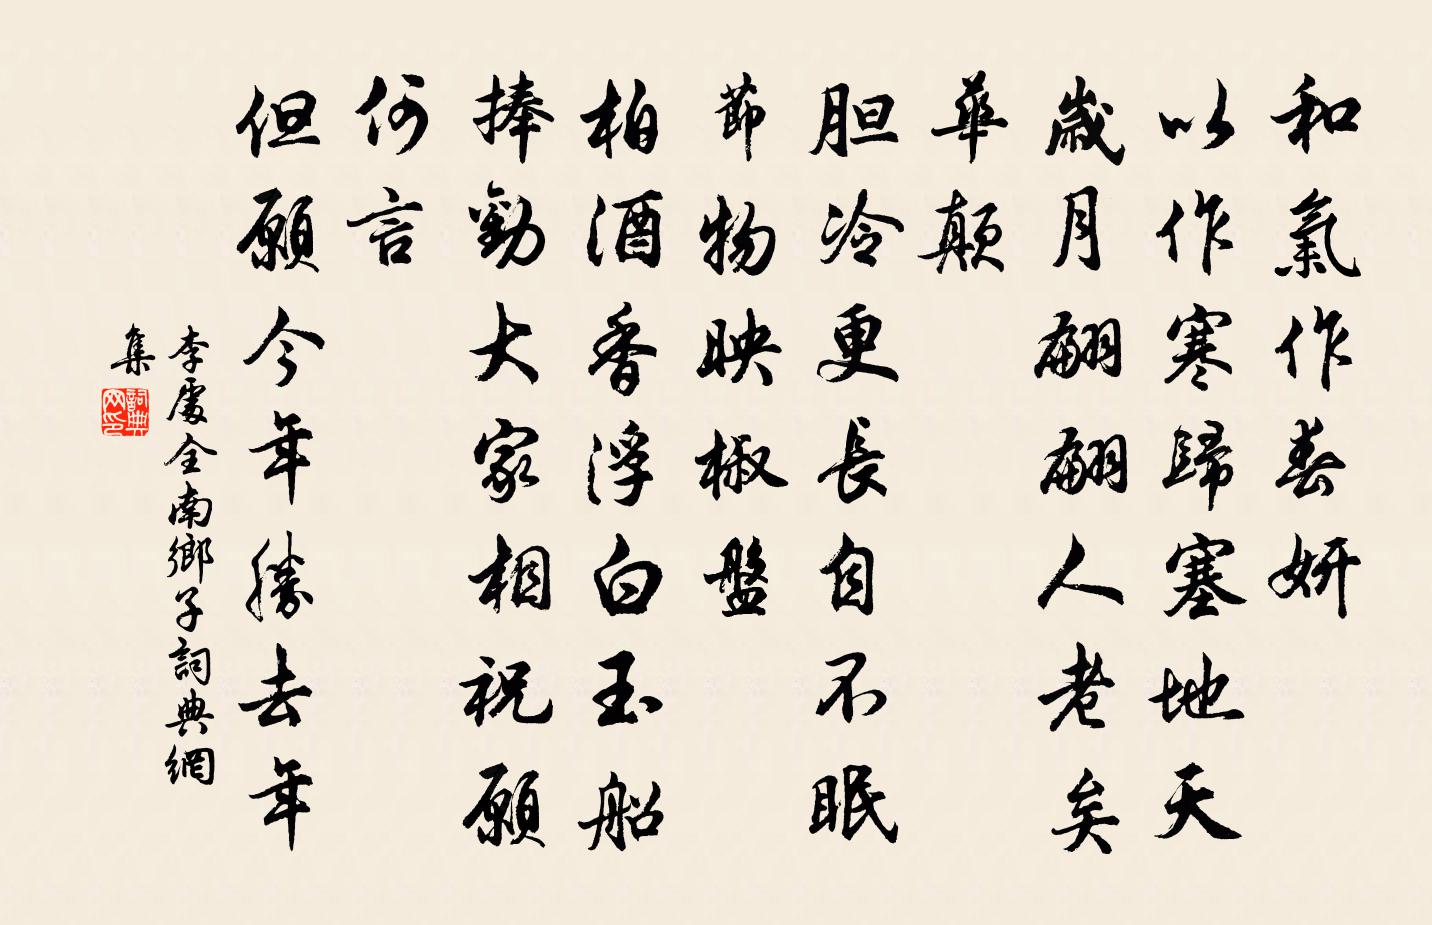 和氣作春妍
以作寒歸塞地天
歲月翩翩人老矣
華顛
胆冷更長自不眠
節物映椒盤
柏酒香浮白玉船
捧勸大家相祝願
何言
但願今年勝去年
李處全南鄉子詞典網
集
詞典网印